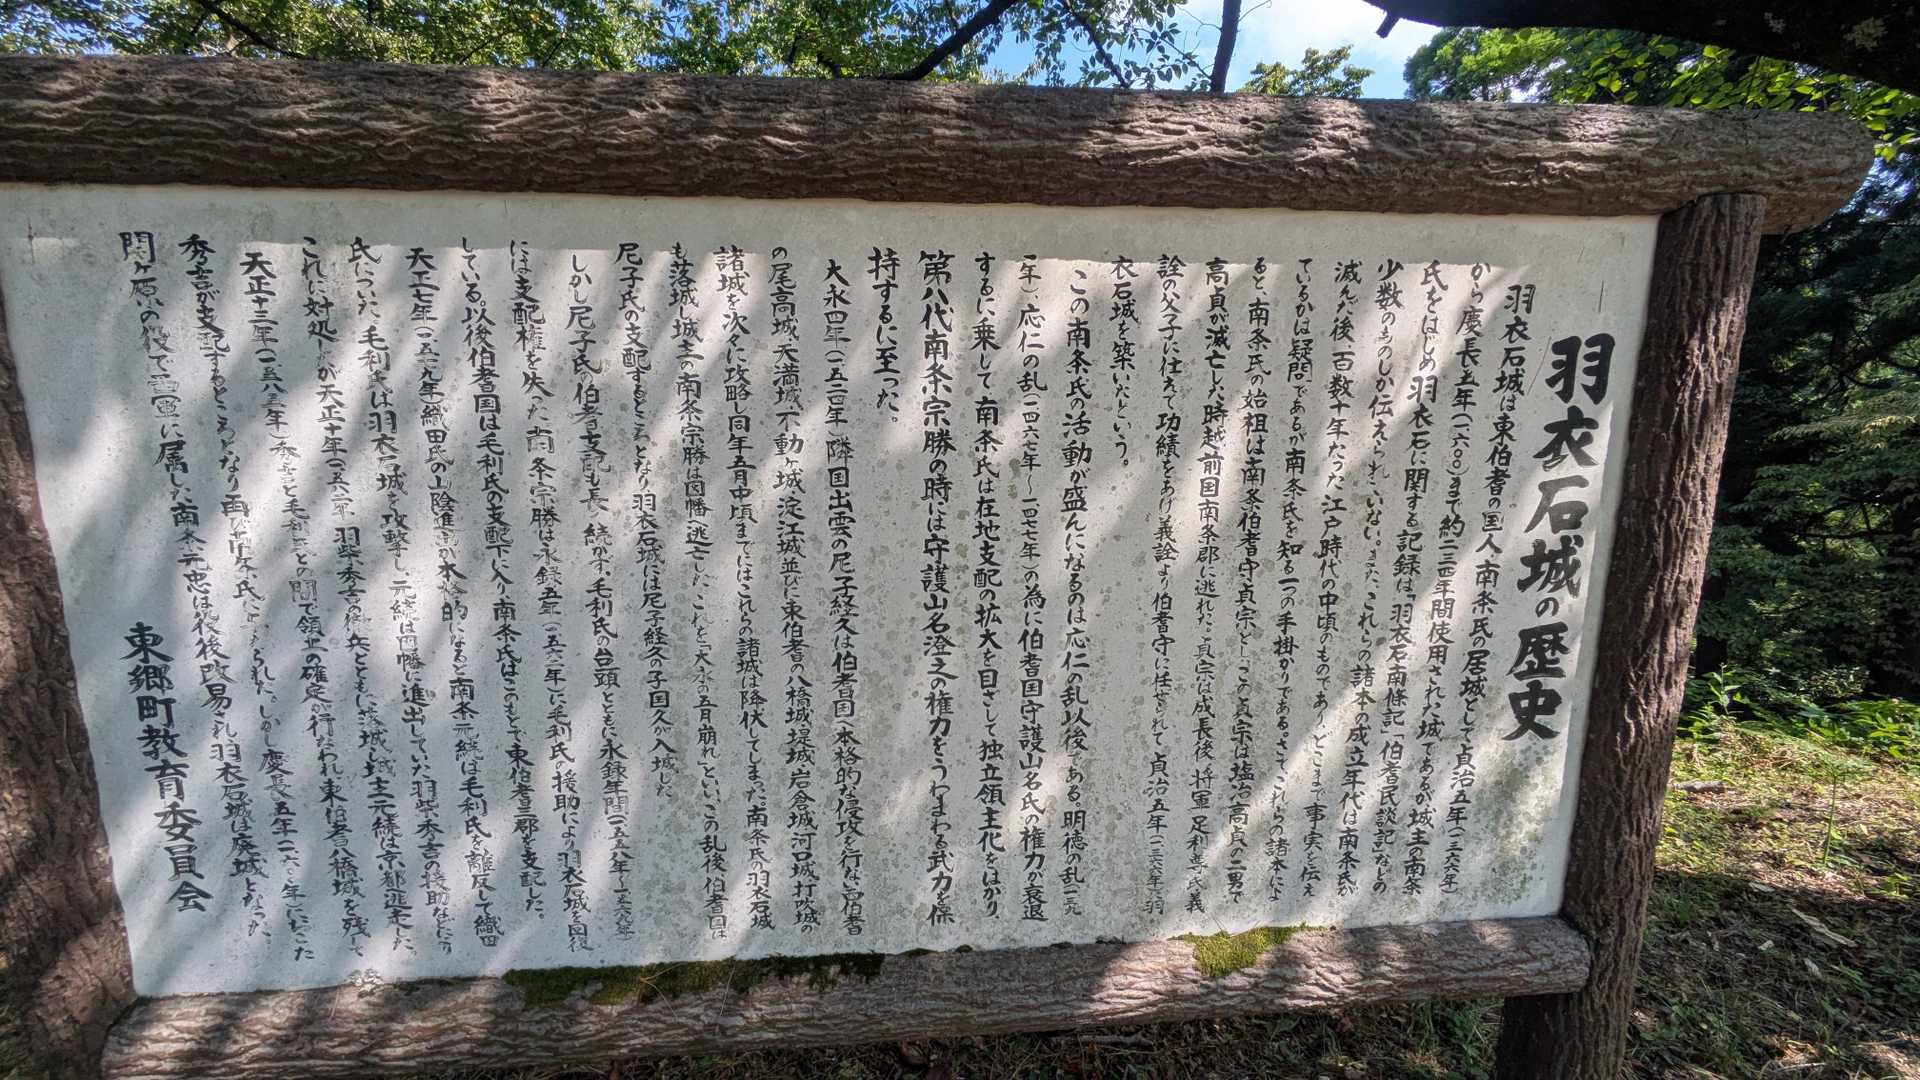 羽衣石城の歴史
羽衣石城は東伯耆の国人南条氏の居城として貞治五年(一三六六年)
から慶長五年(一六〇〇)まで約二三四年間使用された城であるが城主の南条
氏をはじめ羽衣石に関する記録は「羽衣石南條記」「伯耆民談記」などの
少数のものしか伝えられていない。また、これらの諸本の成立年代は南条氏が
滅んだ後百数十年たった江戸時代の中頃のものであり、どこまで事実を伝え
ているかは疑問であるが南条氏を知る一つの手掛かりである。さて、これらの諸本によ
ると、南条氏の始祖は南条伯耆守貞宗とし、この貞宗は塩冶高貞の二男で
高貞が滅亡した時越前国南条郡に逃れた。貞宗は成長後、将軍足利尊氏義
詮の父子に仕えて功績をあげ義詮より伯耆守に任ぜられて貞治五年(一三六六年)羽
衣石城を築いたという。
この南条氏の活動が盛んになるのは応仁の乱以後である。明徳の乱(一三九
一年)、応仁の乱(一四六七年〜一四七七年)の為に伯耆国守護山名氏の権力が衰退
するに乗して南条氏は在地支配の拡大を目さして独立領主化をはかり、
第八代南条宗勝の時には守護山名澄之の権力をうわまわる武力を保
持するに至った。
大永四年(一五二四年)隣国出雲の尼子経久は伯耆国へ本格的な侵攻を行ない西伯耆
の尾高城、天満城、不動ヶ城、淀江城並びに東伯耆の八橋城、堤城、岩倉城、河口城、打吹城の
諸城を次々に攻略し同年五月中頃までにはこれらの諸城は降伏してしまった。南条氏の羽衣石城
も落城し城主の南条宗勝は因幡へ逃亡した。これを「大永の五月崩れ」といい、この乱後伯耆国は
尼子氏の支配するところとなり羽衣石城には尼子経久の子国久が入城した。
しかし尼子氏の伯耆支配も長く続かず、毛利氏の台頭とともに永録年間(一五五八年〜一五六九年)
には支配権を失った。南条宗勝は永録五年(一五六二年)に毛利氏の援助により羽衣石城を回復
している。以後伯耆国は毛利氏の支配下に入り、南条氏はこのもとで東伯耆三郡を支配した。
天正七年(一五七九年)織田氏の山陰進出が本格的になると南条元続は毛利氏を離反して織田
氏についた。毛利氏は羽衣石城を攻撃し、元続は因幡に進出していた羽柴秀吉の援助などにより
これに対処したが天正十年(一五八二年)羽柴秀吉の撤兵とともに落城し城主元続は京都逃走した。
天正十三年(一五八五年)秀吉と毛利氏との間で領地の確定が行なわれ、東伯耆八橋城を残して
秀吉が支配するところとなり再び南条氏に与えられた。しかし慶長五年(一六〇〇年)におこた
関ヶ原の役で西軍に属した南条元忠は役後改易され羽衣石城は廃城となった。
東郷町教育委員会